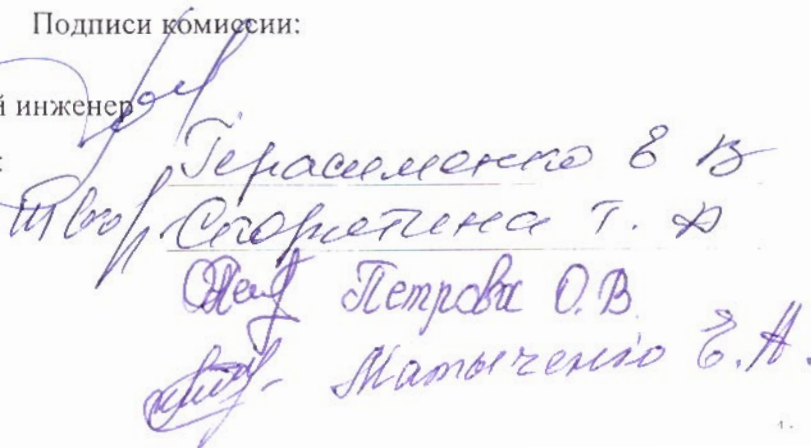 Подписи комиссии:
й инженер
Герасименко Е В
Т. А
Петрова О.В.
Матыченко Е.А.